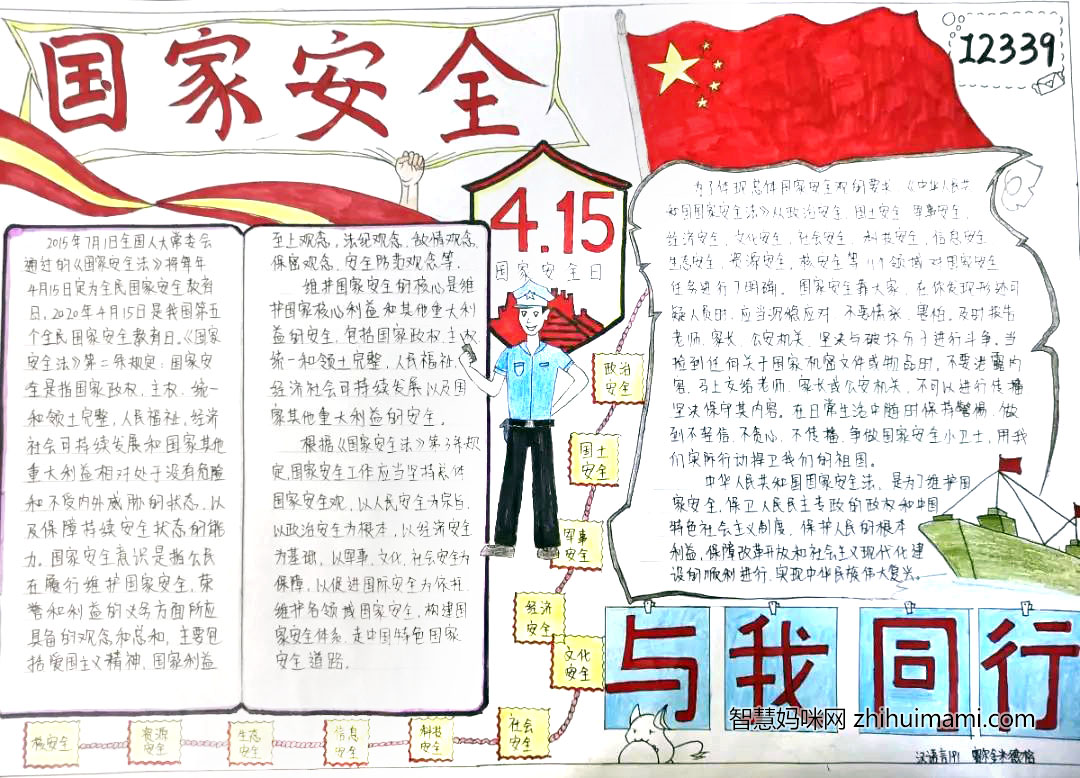 国家安全
12339
4.15
国家安全日
2015年7月1日全国人大常委会
通过的《国家安全法》将每年
4月15日定为全民国家安全教育
日，2020年4月15日是我国第五
个全民国家安全教育日。《国家
安全法》第二条规定：国家安
全是指国家政权、主权、统一
和领土完整，人民福祉、经济
社会可持续发展和国家其他
重大利益相对处于没有危险
和不受内外威胁的状态，以
及保障持续安全状态的能
力。国家安全意识是指公民
在履行维护国家安全，荣
誉和利益的义务方面所应
具备的观念和总和，主要包
括爱国主义精神、国家利益
至上观念，法纪观念，敌情观念，
保密观念、安全防范观念等。
维护国家安全的核心是维
护国家核心利益和其他重大利
益的安全，包括国家政权、主权
统一和领土完整，人民福祉，
经济社会可持续发展以及国
家其他重大利益的安全。
根据《国家安全法》第3条规
定，国家安全工作应当坚持总体
国家安全观，以人民安全为宗旨，
以政治安全为根本，以经济安全
为基础，以军事、文化、社会安全为
保障，以促进国际安全为依托，
维护各领域国家安全，构建国
家安全体系，走中国特色国家
安全道路。
为了体现总体国家安全观的要求，《中华人民共
和国国家安全法》从政治安全，国土安全，军事安全，
经济安全，文化安全，社会安全，科技安全，信息安全
生态安全，资源安全，核安全等11个领域对国家安全
任务进行了明确。国家安全靠大家，在你发现形迹可
疑人员时，应当沉稳应对，不要慌张、害怕，及时报告
老师、家长、公安机关，坚决与破坏分子进行斗争。当
捡到任何关于国家机密文件或物品时，不要泄露内
容，马上交给老师、家长或公安机关，不可以进行传播
坚决保守其内容。在日常生活中随时保持警惕，做
到不轻信、不贪心、不传播，争做国家安全小卫士，用我
们实际行动捍卫我们的祖国。
中华人民共和国国家安全法，是为了维护国
家安全，保卫人民民主专政的政权和中国
特色社会主义制度，保护人民的根本
利益，保障改革开放和社会主义现代化建
设的顺利进行，实现中华民族伟大复兴。
政治
安全
国土
安全
军事
安全
经济
安全
文化
安全
社会
安全
科技
安全
信息
安全
生态
安全
资源
安全
核安全
与我同行
智慧妈咪网 zhihuimami.com